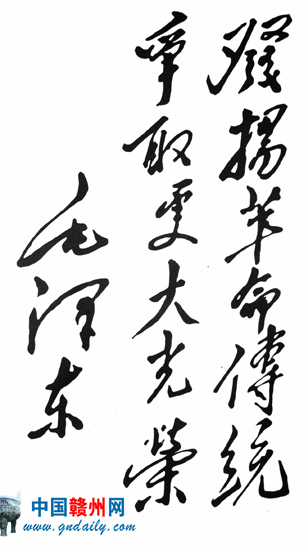 發揚革命傳統
爭取更大光榮
毛泽东
中国赣州网
www.gndaily.com